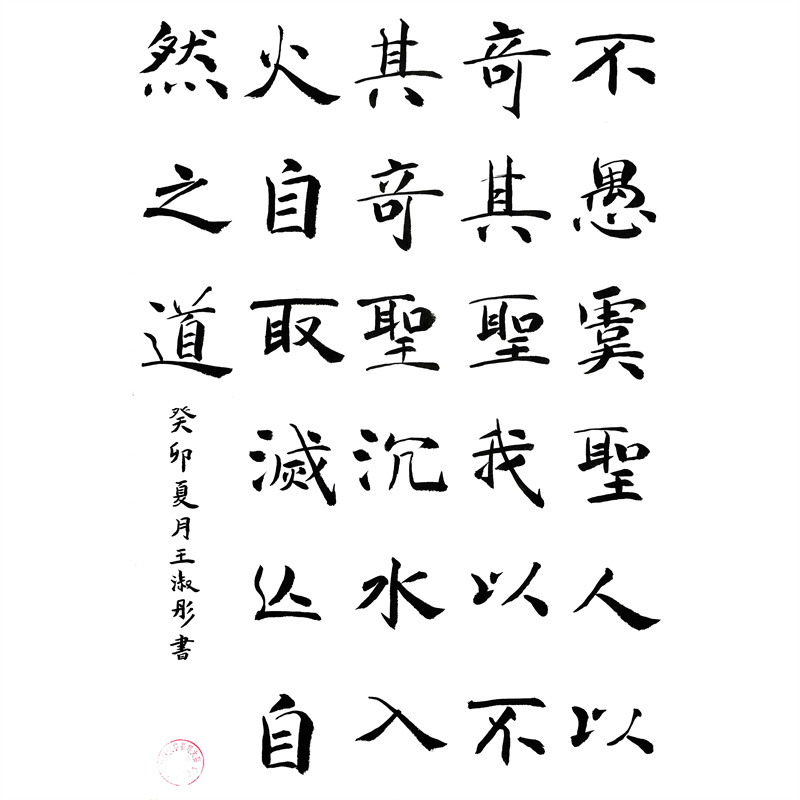 不愚虞聖人以
竒其聖我以不
其竒聖沉水入
火自取滅亾自
然之道
癸卯夏月王淑彤書